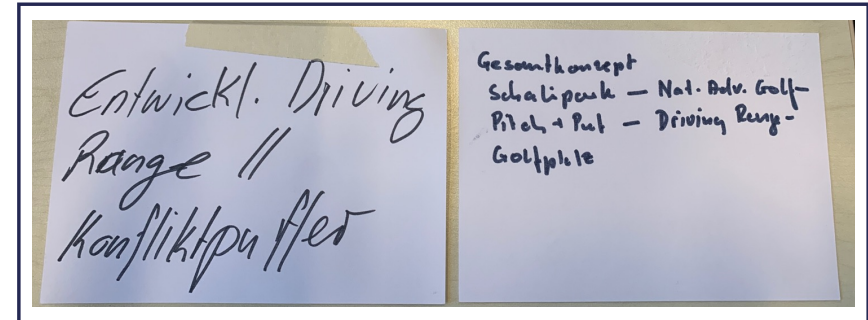 Entwickl. Driving
Range //
Konfliktpuffer
Gesamtkonzept
Schalipark – Nat. Adv. Golf –
Pitch + Put – Driving Range –
Golfplatz